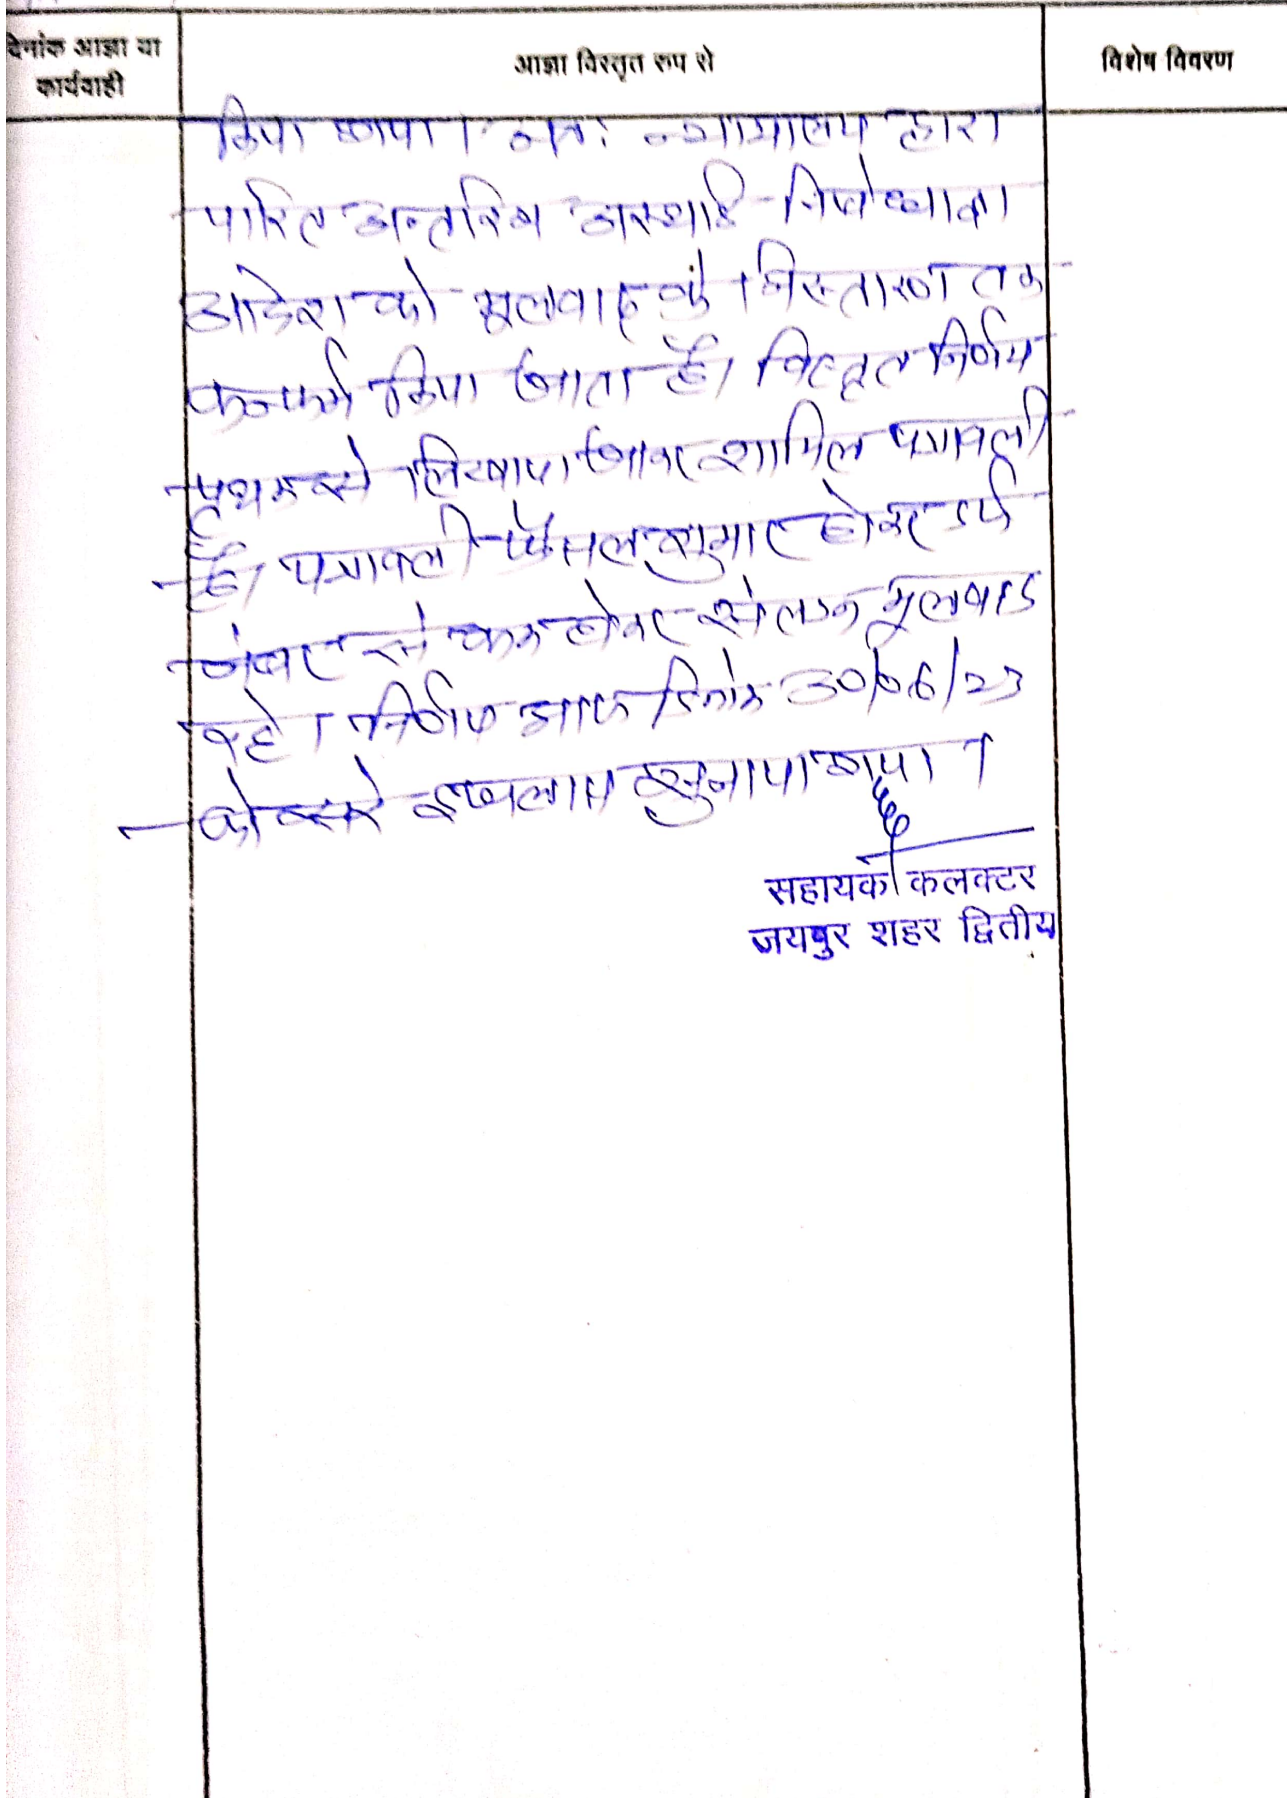 दिनांक आज्ञा या
कार्यवाही
आज्ञा विस्तृत रुप से
विशेष विवरण
किया गया। अतः न्यायालय द्वारा
पारित अन्तरिम अस्थाई निषेधाज्ञा
आदेश को मूलवाद के निस्तारण तक
कन्फर्म किया जाता है। विस्तृत निर्णय
पृथक से लिखाया जाकर शामिल पत्रावली
है। पत्रावली फैसल शुमार होकर दर्ज
नंबर से कम होकर संलग्न मूलवाद
रहे। निर्णय आज दिनांक 30/06/23
को सरे इजलास सुनाया गया।
सहायक कलक्टर
जयपुर शहर द्वितीय